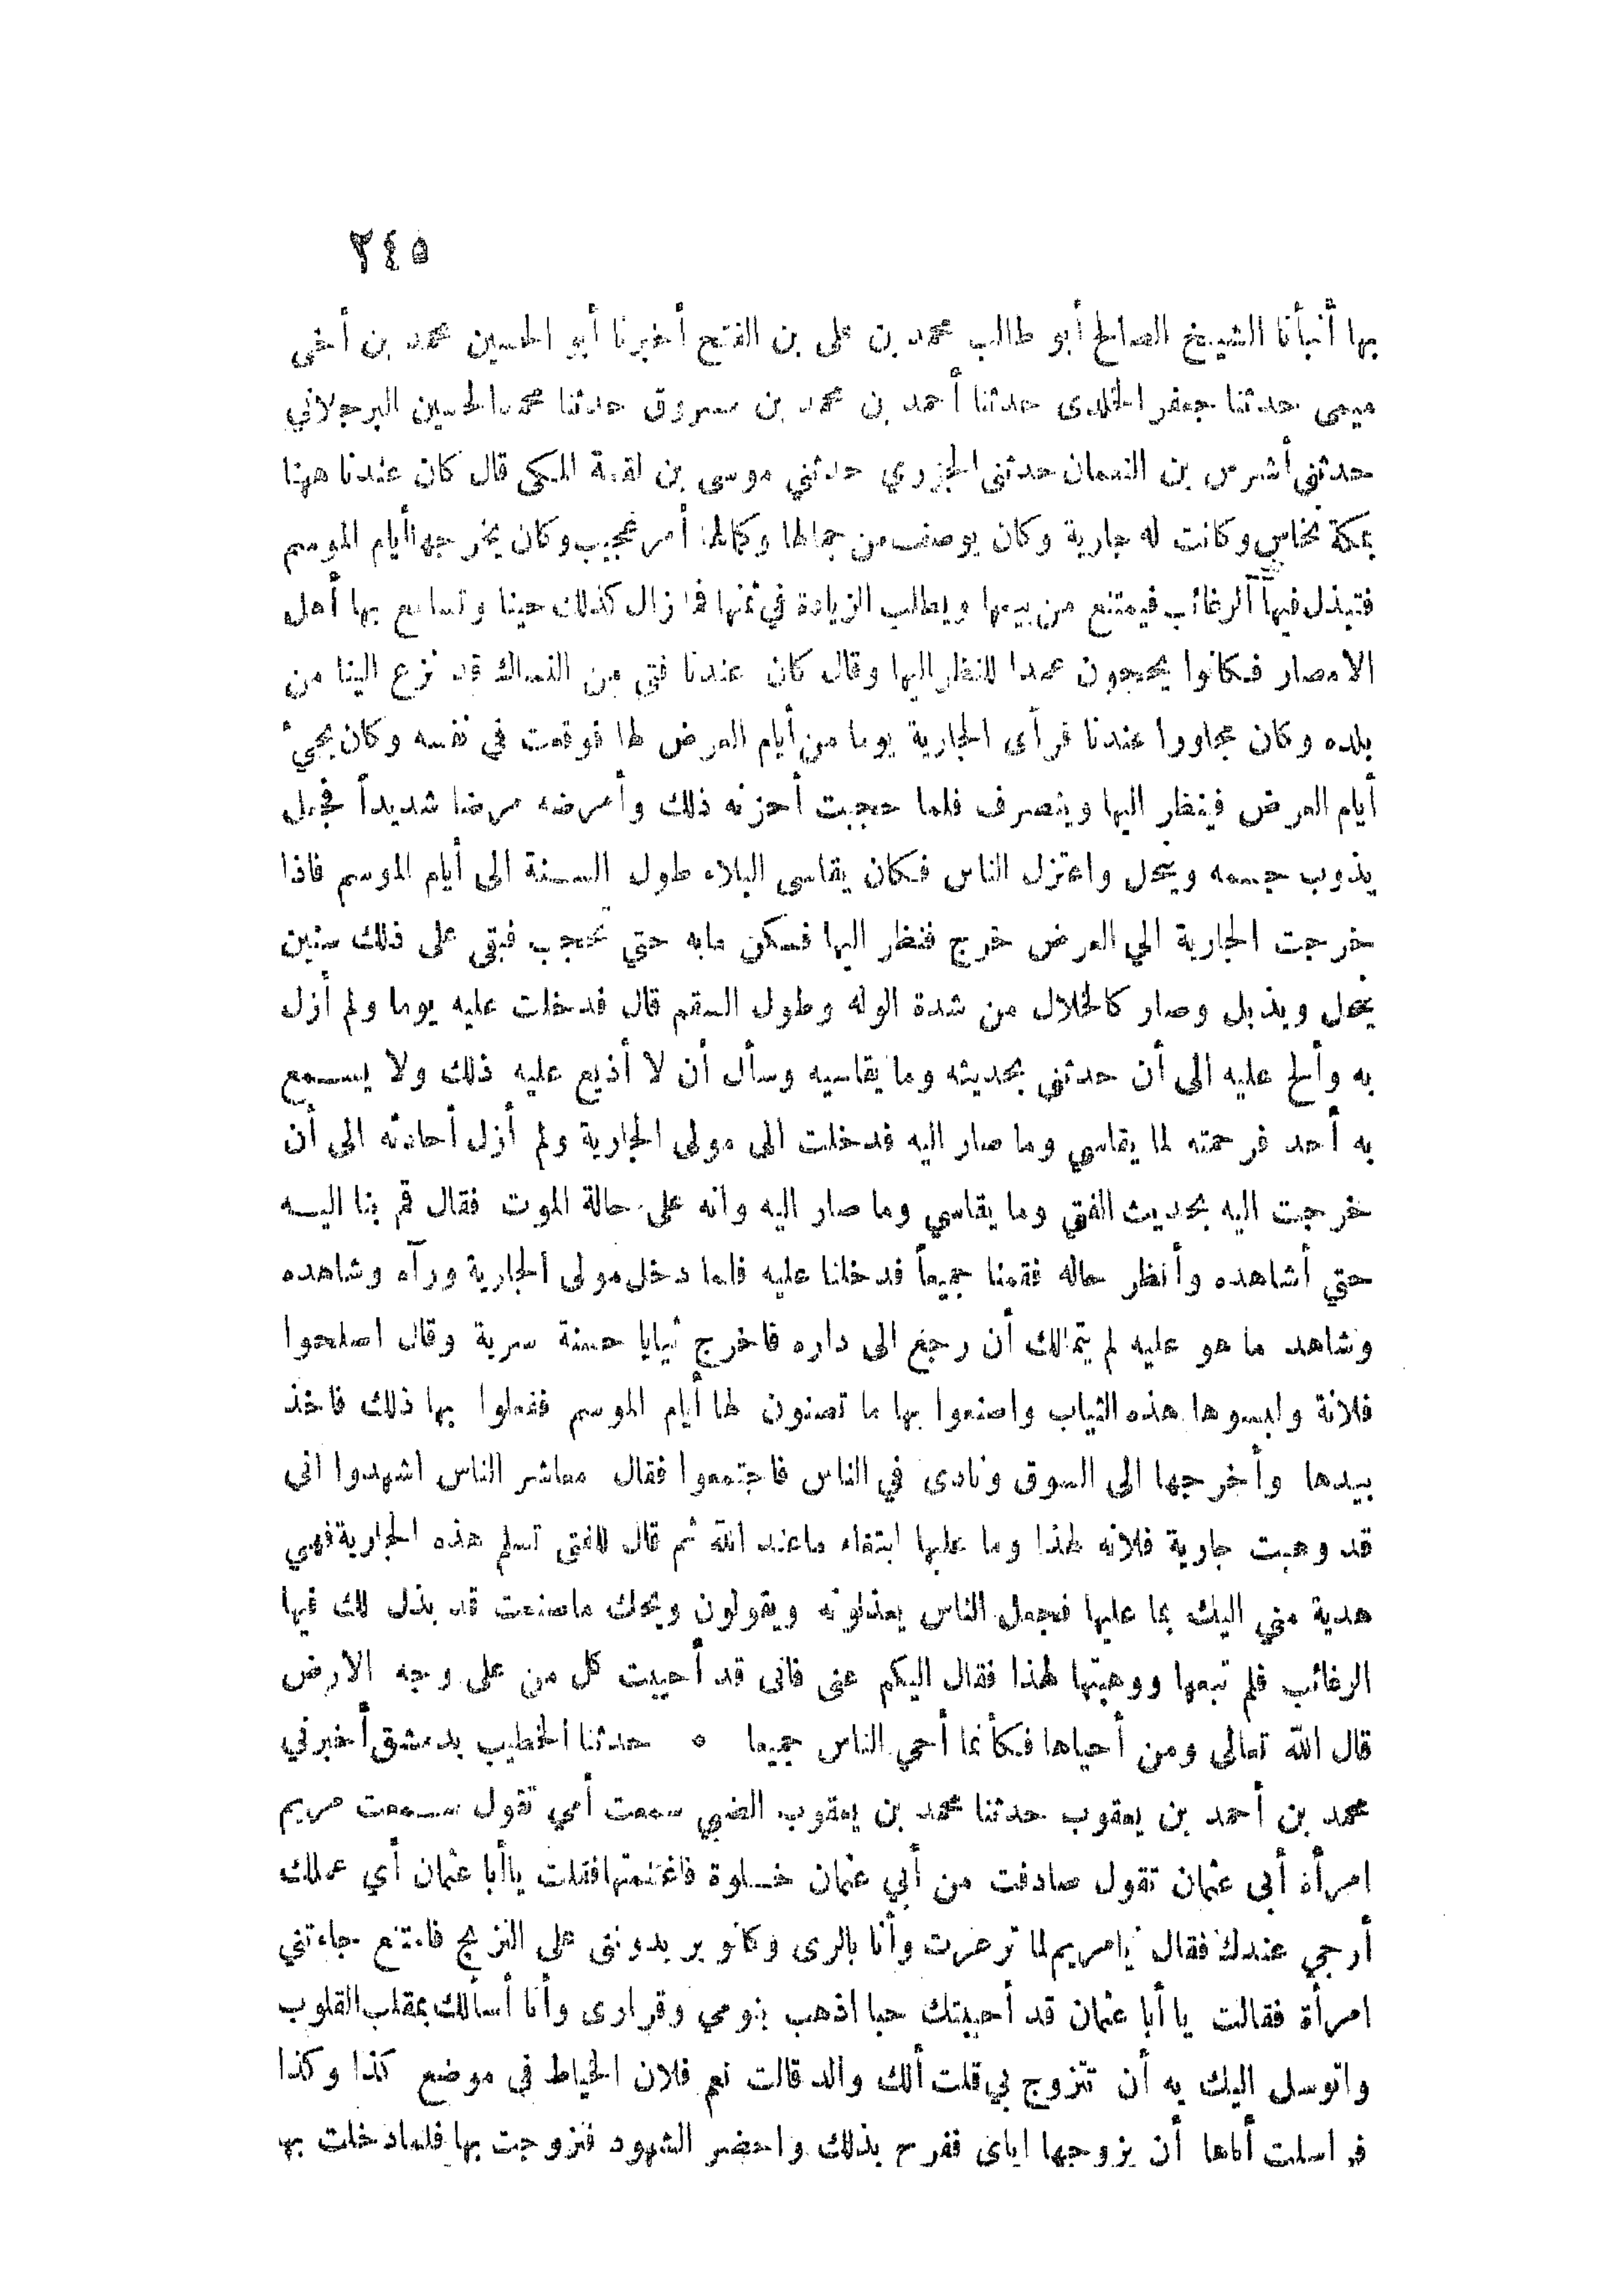 ٢٤٥
بها أنبأنا الشيخ الصالح أبو طالب محمد بن على بن الفتح أخبرنا أبو الحسين محمد بن أخى
ميمى حدثنا جعفر الخلدى حدثنا أحمد بن محمد بن مسروق حدثنا محمد الحسين البرجلاني
حدثني أشرس بن النعمان حدثنى الجزري حدثني موسى بن لقمة المكى قال كان عندنا ههنا
بمكة نخاس وكانت له جارية وكان يوصف من جمالها وكمالها أمر عجيب وكان يخرجها أيام الموسم
فتبذل فيها الرغائب فيمتنع من بيعها ويطلب الزيادة في ثمنها فما زال كذلك حينا وتسامع بها أهل
الامصار فكانوا يحجون عمدا للنظر اليها وقال كان عندنا فتى من النساك قد نزع الينا من
بلده وكان مجاورا عندنا فرأى الجارية يوما من أيام العرض لها فوقعت في نفسه وكان يجيء
أيام العرض فينظر اليها وينصرف فلما حجبت أحزنه ذلك وأمرضه مرضا شديداً فجعل
يذوب جسمه وينحل واعتزل الناس فكان يقاسى البلاء طول السنة الى أيام الموسم فاذا
خرجت الجارية الي العرض خرج فنظر اليها فسكن مابه حتي تحجب فبقى على ذلك سنين
ينحل ويذبل وصار كالخلال من شدة الوله وطول السقم قال فدخلت عليه يوما ولم أزل
به وألح عليه الى أن حدثنى بحديثه وما يقاسيه وسأل أن لا أذيع عليه ذلك ولا يسمع
به أحد فرحمته لما يقاسي وما صار اليه فدخلت الى مولى الجارية ولم أزل أحادثه الى أن
خرجت اليه بحديث الفتي وما يقاسي وما صار اليه وانه على حالة الموت فقال قم بنا اليه
حتي أشاهده وأنظر حاله فقمنا جميعاً فدخلنا عليه فلما دخل مولى الجارية ورآه وشاهده
وشاهد ما هو عليه لم يتمالك أن رجع الى داره فاخرج ثيابا حسنة سرية وقال اصلحوا
فلانة والبسوها هذه الثياب واصنعوا بها ما تصنعون لها أيام الموسم ففعلوا بها ذلك فاخذ
بيدها وأخرجها الى السوق ونادى في الناس فاجتمعوا فقال معاشر الناس اشهدوا انى
قد وهبت جارية فلانه لهذا وما عليها ابتغاء ماعند الله ثم قال للفتى تسلم هذه الجارية فهي
هدية مني اليك بما عليها فجعل الناس يعذلونه ويقولون ويحك ماصنعت قد بذل لك فيها
الرغائب فلم تبعها ووهبتها لهذا فقال اليكم عنى فانى قد أحييت كل من على وجه الارض
قال الله تعالى ومن أحياها فكأنما أحي الناس جميعا ٥ حدثنا الخطيب بدمشق أخبرني
محمد بن أحمد بن يعقوب حدثنا محمد بن يعقوب الضبي سمعت أمي تقول سمعت مريم
امرأة أبى عثمان تقول صادفت من أبي عثمان خلوة فاغتنمتها فقلت ياأبا عثمان أي عملك
أرجي عندك فقال يامريم لما ترعرت وأنا بالرى وكانو يريدوننى على التزيج فامتنع جاءتني
امرأة فقالت يا أبا عثمان قد أحببتك حبا اذهب بنومي وقرارى وأنا أسألك بمقلب القلوب
واتوسل اليك به أن تتزوج بي قلت ألك والد قالت نعم فلان الخياط في موضع كذا وكذا
فراسلت أباها أن يزوجها اياى ففرح بذلك واحضر الشهود فتزوجت بها فلما دخلت بها